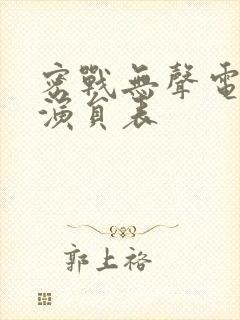 密戰無聲電
演員表
郭上裕